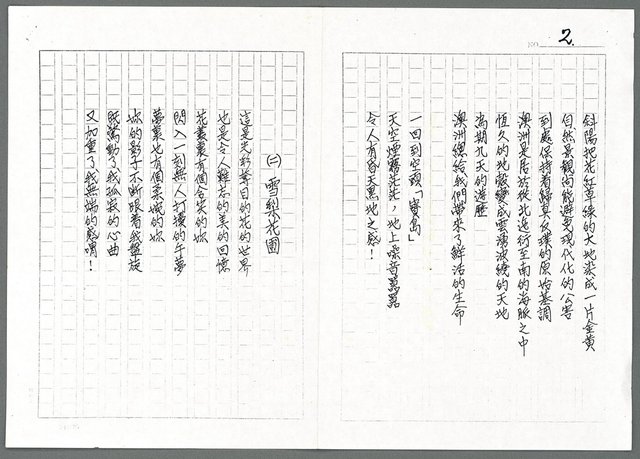 NO. 2.
斜陽把花紅草綠的大地染成一片金黃
自然景觀尚能避免現代化的公害
到處保持着歸真反璞的原始基調
澳洲是居於從北迤衍至南的海脈之中
恆久的地殼變成雲濤波繞的天地
為期九天的遊歷
澳洲總給我們帶來了鮮活的生命
一回到空頭「寶島」
天空煙霧茫茫，地上噪音囂囂
令人有昏天黑地之感！
㈡雪梨花園
這是光彩奪目的花的世界
也是令人難忘的美的回憶
花叢裏有個含笑的妳
闖入一刻無人打擾的午夢
夢裏也有個柔媚的妳
妳的影子不斷跟着我盤旋
既驚動了我孤寂的心曲
又加重了我無端的感喟！